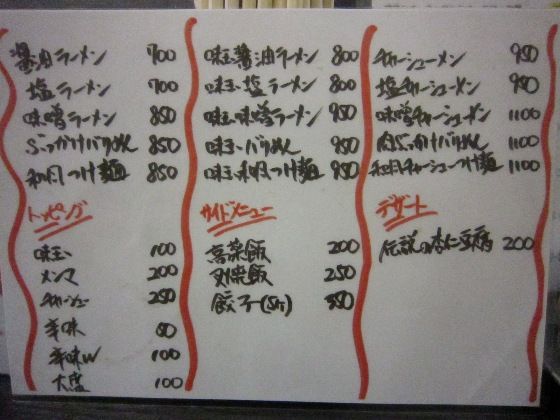 醤油ラーメン 700
塩ラーメン 700
味噌ラーメン 850
ぶっかけバリめん 850
和風つけ麺 850
トッピング
味玉 100
メンマ 200
チャーシュー 250
辛味 50
辛味W 100
大盛 100
味玉醤油ラーメン 800
味玉塩ラーメン 800
味玉味噌ラーメン 950
味玉バリめん 950
味玉和風つけ麺 950
サイドメニュー
高菜飯 200
叉焼飯 250
餃子(5ケ) 350
チャーシューメン 950
塩チャーシューメン 950
味噌チャーシューメン 1100
肉ぶっかけバリめん 1100
和風チャーシューつけ麺 1100
デザート
伝説の杏仁豆腐 200